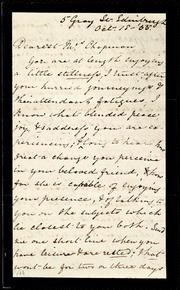 5 Gray St. Edinburgh
Oct. 15 - 55
Dearest Mrs Chapman
You are at length enjoying
a little stillness, I trust, after
your hurried journeyings &
the attendant fatigues. I
know what blended peace,
joy, & sadness you are ex-
periencing, & long to hear how
great a change you perceive
in your beloved friend, & how
far she is capable of enjoying
your presence, & of talking to
you on the subjects which
lie closest to you both. Send
me one short line when you
have leisure & are rested; that
won't be for two or three days